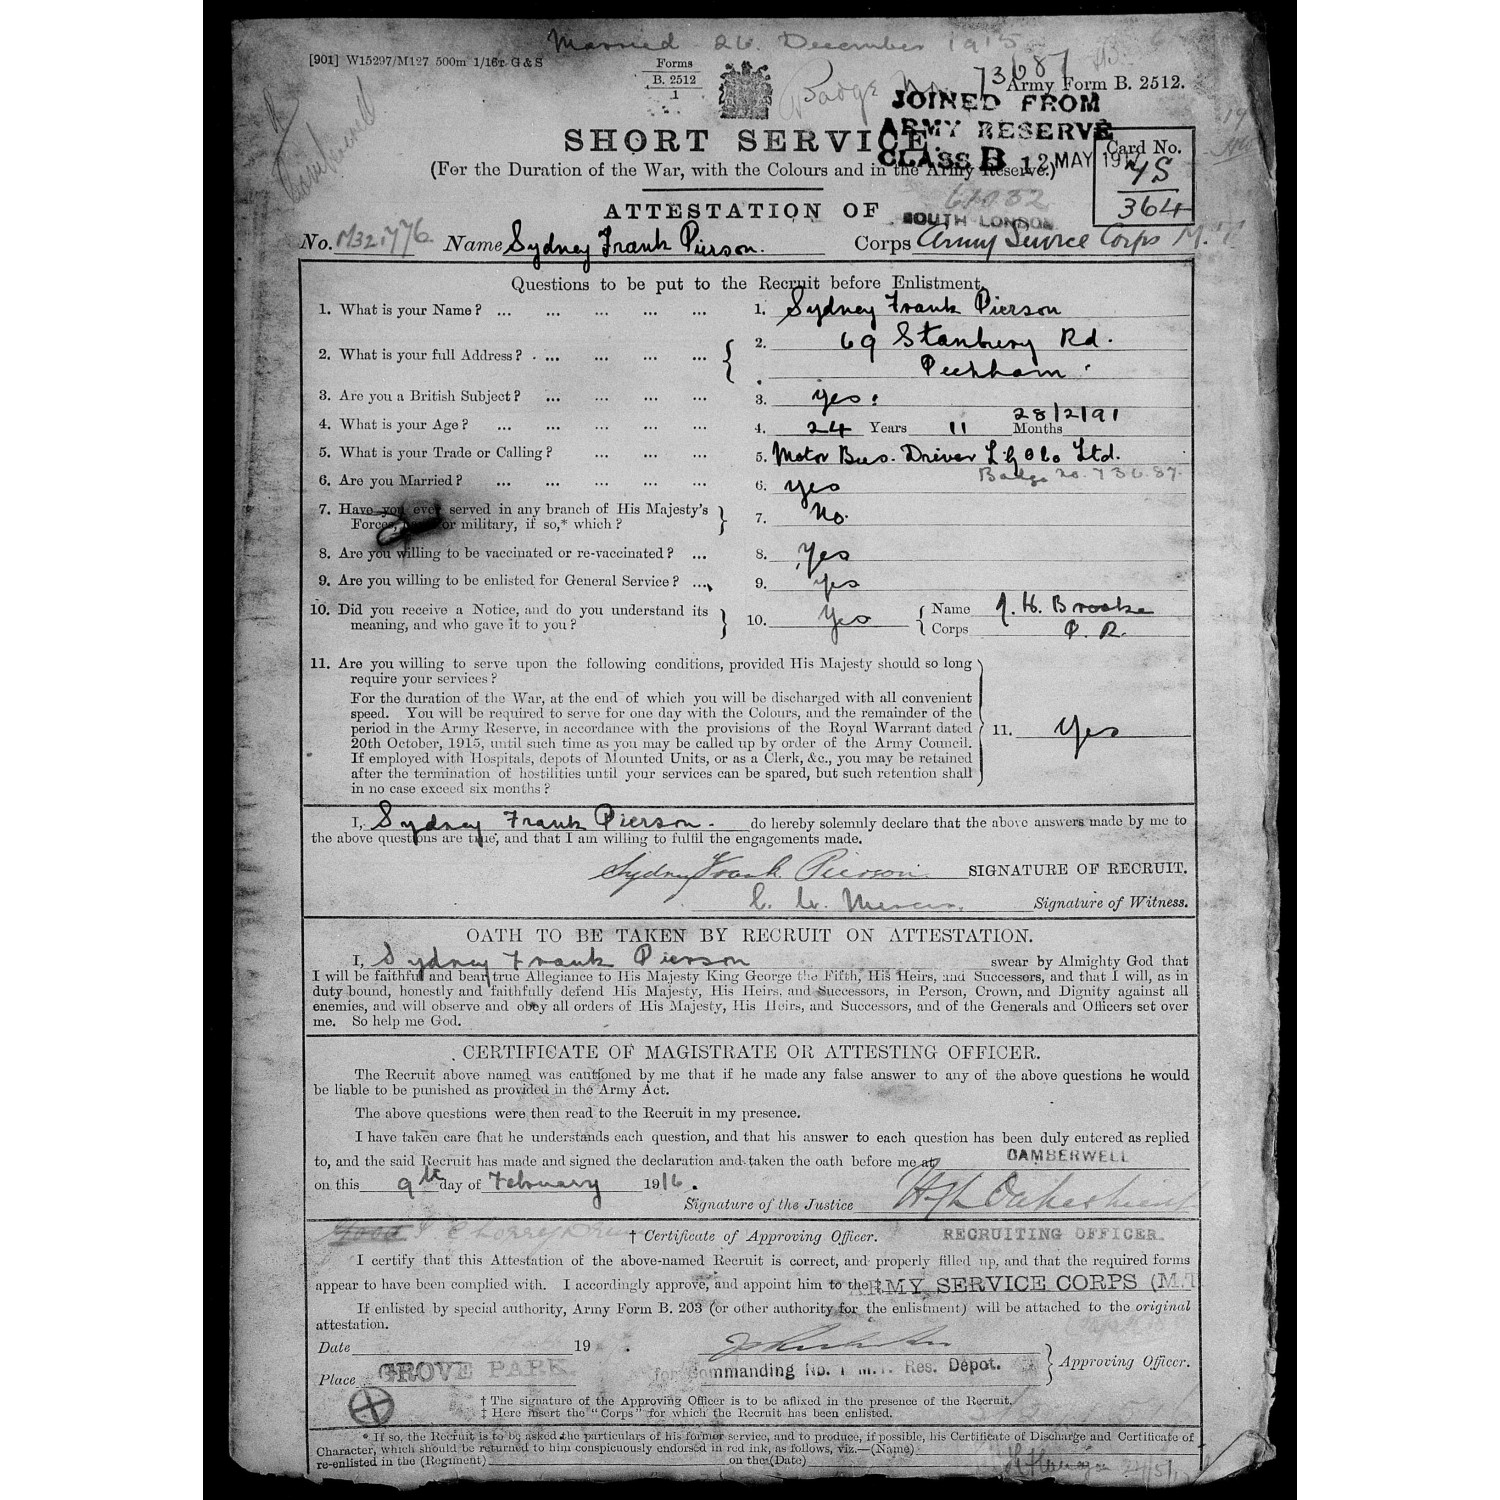 Married 26. December 1915
[901] W15297/M127 500m 1/16 G & S
Forms
B. 2512
1
Badge No. 73687
Army Form B. 2512.
Camberwell
JOINED FROM
ARMY RESERVE
CLASS B 12 MAY 191
SHORT SERVICE.
(For the Duration of the War, with the Colours and in the Army Reserve.)
Card No.
45
364
61032
SOUTH LONDON
ATTESTATION OF
No. M321776 Name Sydney Frank Pierson. Corps Army Service Corps M.T.
Questions to be put to the Recruit before Enlistment.
1. What is your Name? ... ... ... ... ... 1. Sydney Frank Pierson
2. What is your full Address? ... ... ... ... 2. 69 Stanbury Rd.
Peckham.
3. Are you a British Subject? ... ... ... ... 3. Yes.
4. What is your Age? ... ... ... ... ... 4. 24 Years 11 Months 28/2/91
5. What is your Trade or Calling? ... ... ... 5. Motor Bus. Driver L.G.O.Co Ltd.
Badge no. 73687.
6. Are you Married? ... ... ... ... ... 6. yes
7. Have you ever served in any branch of His Majesty's
Forces, or military, if so,* which? 7. No.
8. Are you willing to be vaccinated or re-vaccinated? ... 8. Yes
9. Are you willing to be enlisted for General Service? ... 9. yes
10. Did you receive a Notice, and do you understand its
meaning, and who gave it to you? 10. Yes Name J. H. Brooke
Corps O. R.
11. Are you willing to serve upon the following conditions, provided His Majesty should so long
require your services?
For the duration of the War, at the end of which you will be discharged with all convenient
speed. You will be required to serve for one day with the Colours, and the remainder of the
period in the Army Reserve, in accordance with the provisions of the Royal Warrant dated
20th October, 1915, until such time as you may be called up by order of the Army Council.
If employed with Hospitals, depots of Mounted Units, or as a Clerk, &c., you may be retained
after the termination of hostilities until your services can be spared, but such retention shall
in no case exceed six months?
11. Yes
I, Sydney Frank Pierson. do hereby solemnly declare that the above answers made by me to
the above questions are true, and that I am willing to fulfil the engagements made.
Sydney Frank Pierson. SIGNATURE OF RECRUIT.
C. W. Signature of Witness.
OATH TO BE TAKEN BY RECRUIT ON ATTESTATION.
I, Sydney Frank Pierson swear by Almighty God that
I will be faithful and bear true Allegiance to His Majesty King George the Fifth, His Heirs, and Successors, and that I will, as in
duty bound, honestly and faithfully defend His Majesty, His Heirs, and Successors, in Person, Crown, and Dignity against all
enemies, and will observe and obey all orders of His Majesty, His Heirs, and Successors, and of the Generals and Officers set over
me. So help me God.
CERTIFICATE OF MAGISTRATE OR ATTESTING OFFICER.
The Recruit above named was cautioned by me that if he made any false answer to any of the above questions he would
be liable to be punished as provided in the Army Act.
The above questions were then read to the Recruit in my presence.
I have taken care that he understands each question, and that his answer to each question has been duly entered as replied
to, and the said Recruit has made and signed the declaration and taken the oath before me at CAMBERWELL
on this 9th day of February 1916.
Signature of the Justice
† Certificate of Approving Officer.
RECRUITING OFFICER.
I certify that this Attestation of the above-named Recruit is correct, and properly filled up, and that the required forms
appear to have been complied with. I accordingly approve, and appoint him to the‡ ARMY SERVICE CORPS (M.T
If enlisted by special authority, Army Form B. 203 (or other authority for the enlistment) will be attached to the original
attestation.
Date 19 .
Place GROVE PARK
for Commanding No. 1 M.T. Res. Depot. Approving Officer.
† The signature of the Approving Officer is to be affixed in the presence of the Recruit.
‡ Here insert the "Corps" for which the Recruit has been enlisted.
* If so, the Recruit is to be asked the particulars of his former service, and to produce, if possible, his Certificate of Discharge and Certificate of
Character, which should be returned to him conspicuously endorsed in red ink, as follows, viz.—(Name)
re-enlisted in the (Regiment) on the (Date)